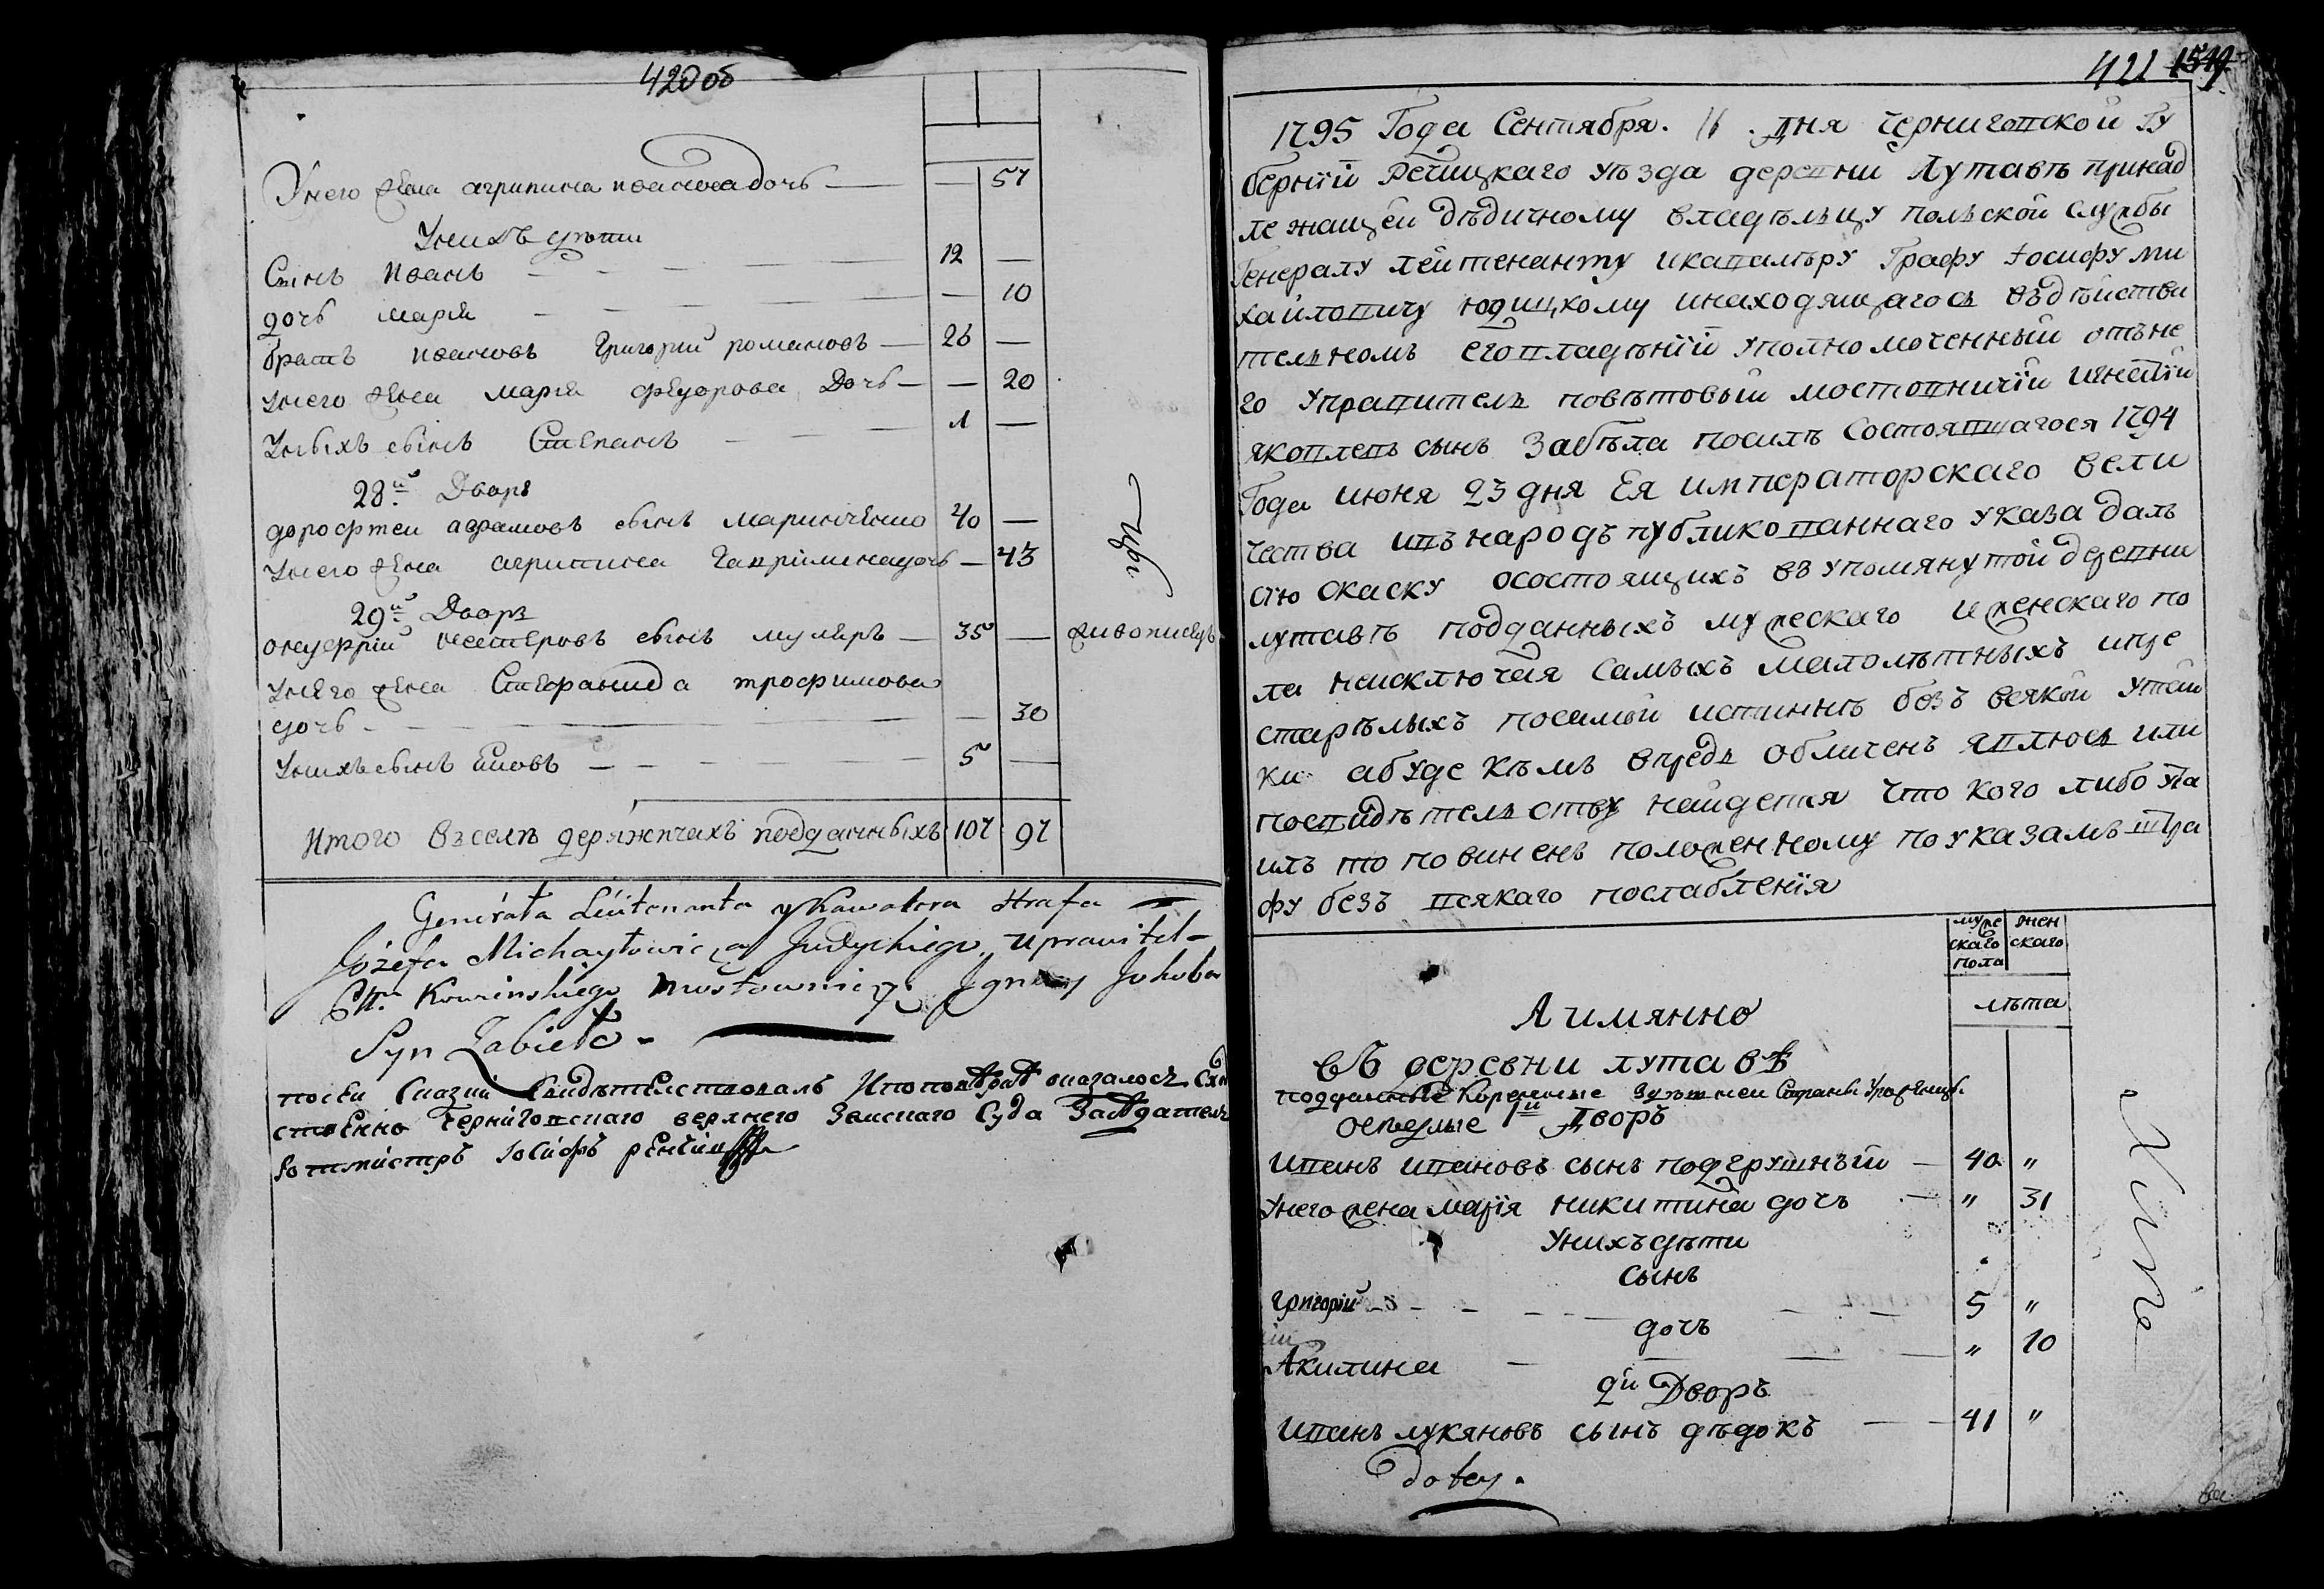 420 об
У него жена агрипина ивановна дочь — — 57
У них дѣти
Сынъ иванъ — 12 —
дочь марія — — 10
братъ ивановъ Григорий романовъ — 26 —
у него жена марія федорова Дочь — — 20
У ныхъ сынъ Степанъ — 1 —
28й Дворъ
дорофтеи адамовъ сынъ маринченко 40 —
У него жена агрипина Гаврилина дочь — 43
29й Дворъ
онуфрій нестеровъ сынъ муляръ — 35 —
у него жена Стефанида трофимова
дочь — — 30
У нихъ сынъ 5 —
Итого въ селѣ подданныхъ 107 97
Generała Leitenanta y Kawalera Hrafa
Józefa Michayłowicza Judyckiego uprawitel
Kowieński Mostowniczy Ignacy Jakoba
Syn Zabieło
по сеи Сказки Свидѣтелствовалъ И по оказалось
Чернигопскаго верхнего Земскаго Суда Засѣдатель
Ротмистръ Іосифъ
421 1549
1795 Года Сентября. 11 . дня Чернигопской Гу
берніи Речицкаго уѣзда дерепни Лутавѣ принад
лежащеи дѣдичному владѣльцу польской службы
Генералу лейтенанту и капалѣру Графу Іосифу Ми
хайлопичу юдицкому и находящагося въ дѣйстви
тельномъ его пладѣніи уполномоченный отъ не
го Упрапитель повѣтовый мостопничіи игнатій
якоплепъ сынъ Забѣла посилѣ Состояпшагося 1794
Года июня 23 дня Ея императорскаго вели
чества ипъ народъ публикопаннаго указа далъ
сію скаску о состоящихъ въ упомянутой дерепни
лутавѣ подданныхъ мужескаго и женскаго по
ла не исключая самыхъ малолѣтныхъ и пре
старѣлыхъ по самой истиннѣ безъ всякой утай
ки а буде кѣмъ впредь обличенъ яплюсь или
по спидѣтельству найдется что кого либо ута
илъ то повиненъ положенному по указамъ штра
фу безъ псякаго послабленія
муже
скаго
пола
жен
скаго
лѣта
А имянно
въ деревни лутавѣ
подданные Коренные
1й Дворъ
Ипанъ ипановъ сынъ подгрушный — 40 "
У него жена марія никитина дочь — " 31
У нихъ дѣти
сынъ
Григорій — 5 "
дочь
Акилина — " 10
2й Дворъ
Ипанъ лукяновъ сынъ дѣдокъ — 41 "